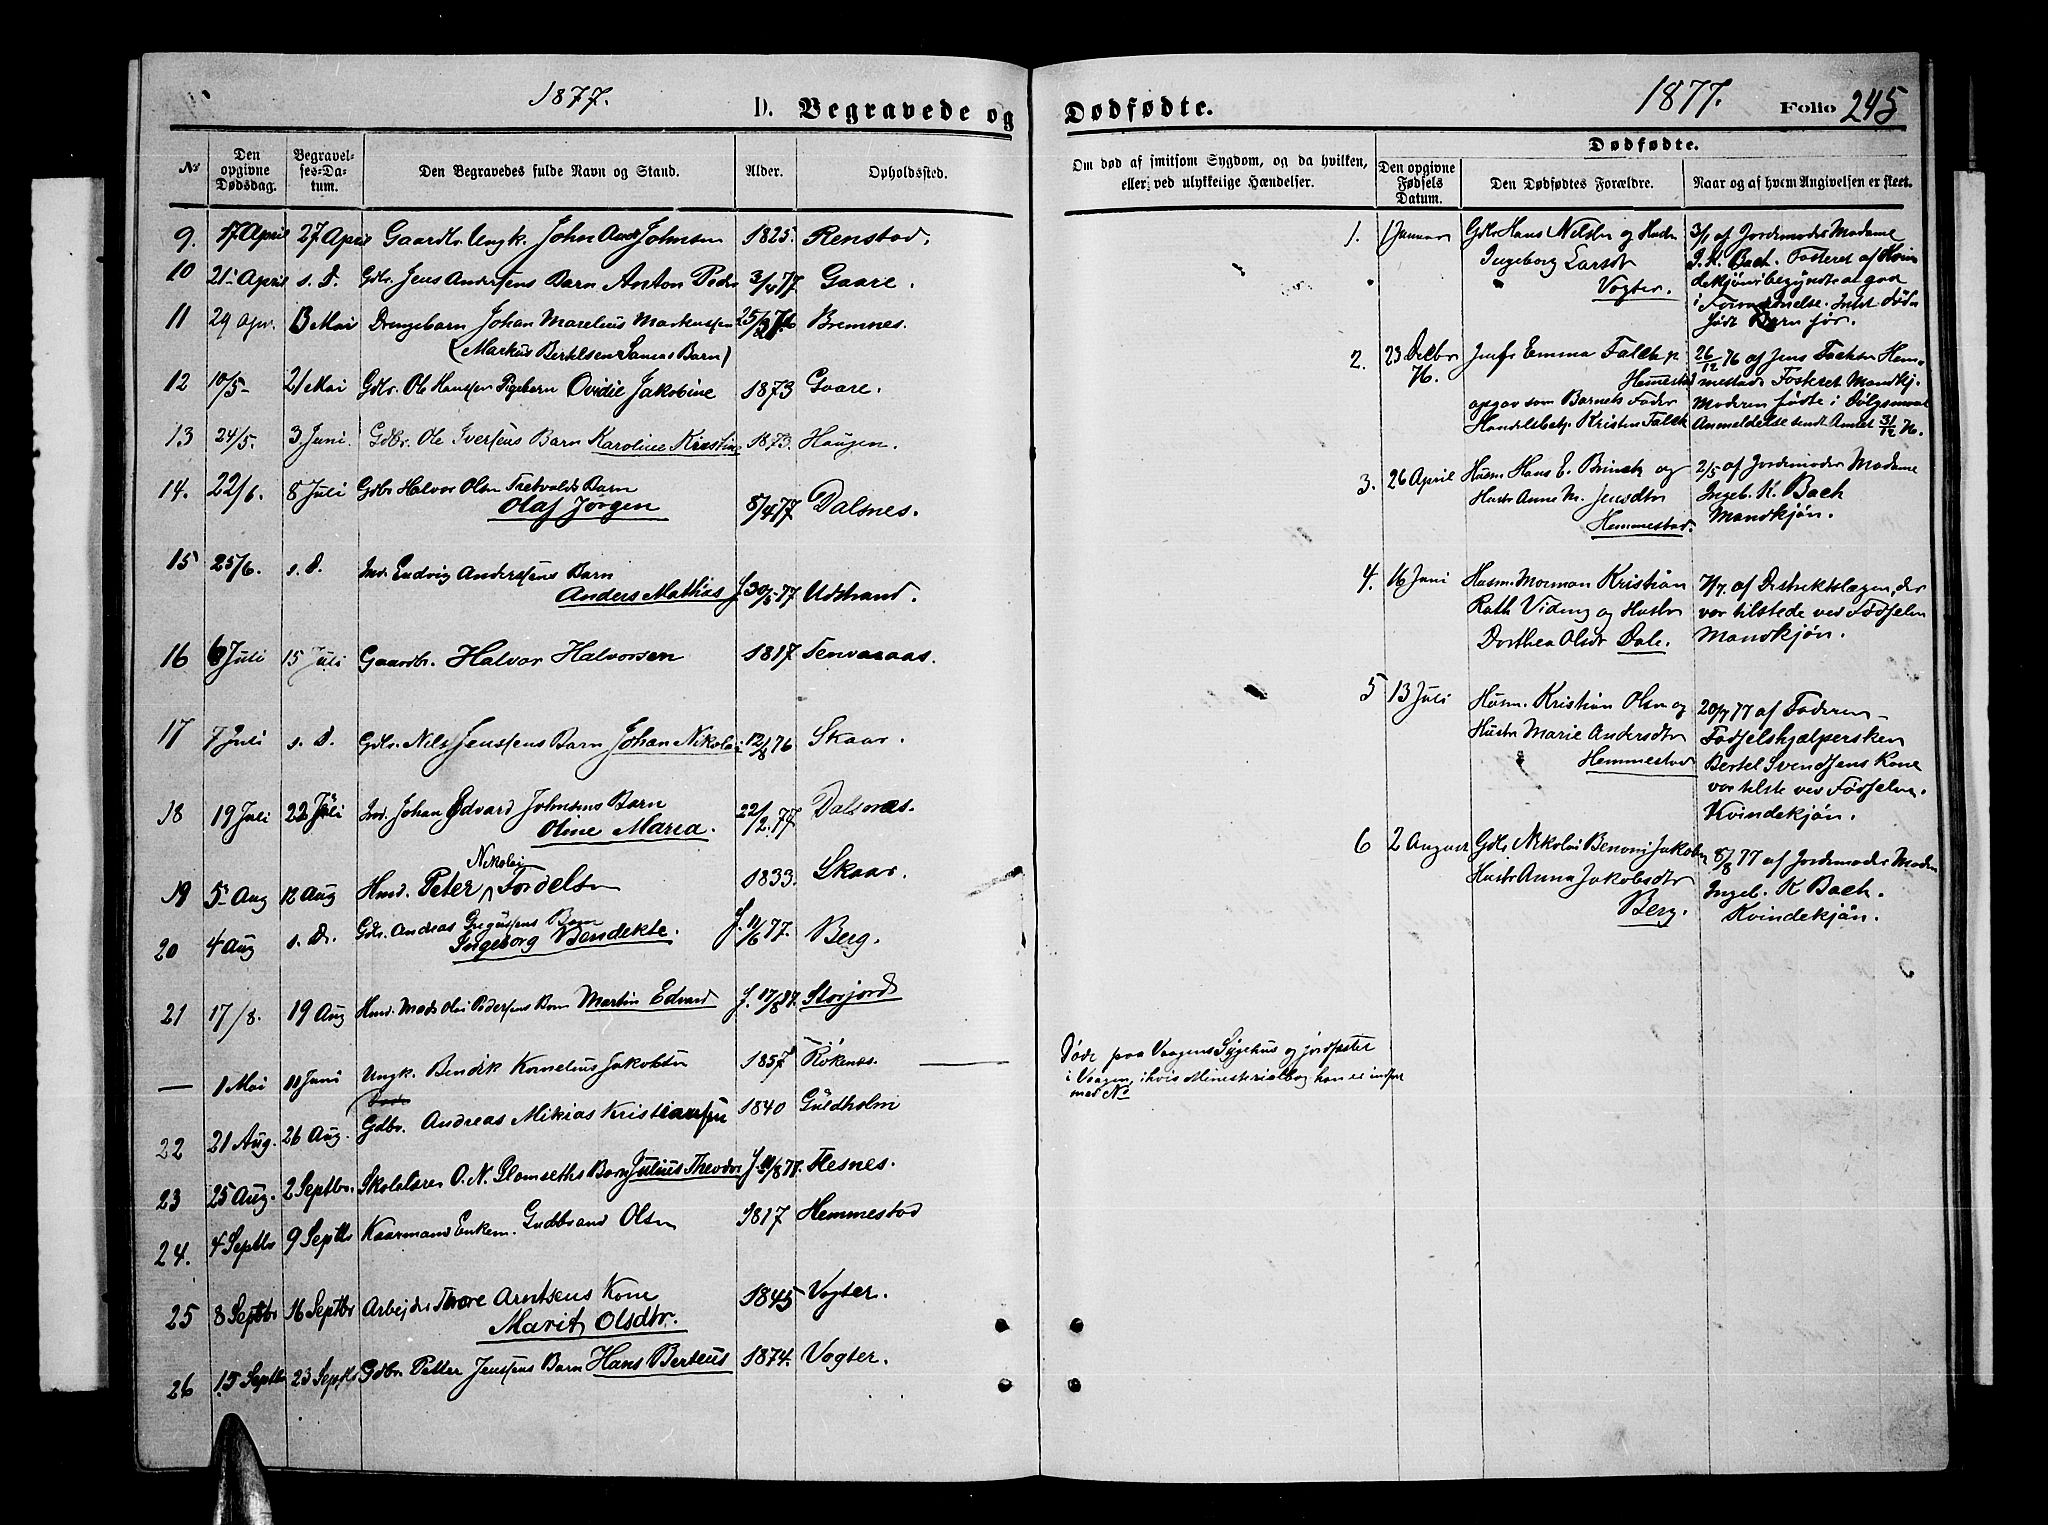 1877.
D. Begravede og
No
Den opgivne Dødsdag.
Begravelses-Datum.
Den Begravedes fulde Navn og Stand.
Alder.
Opholdssted.
9. 17 April 27 April Gaardbr. Ungk. John And. Johnsen 1825. Renstad.
10 21 April s. D. Gdbr. Jens Andersens Barn Anton Peder 3/4 77 Gaare.
11 29 Apr. 13 Mai Drengebarn Johan Marelius Markussen Bremnes.
(Markus Bertelsen Barn)
12 10/5 21 Mai Gdbr. Ole Hanssen Pigebarn Ovidie Jakobine 1873 Gaare.
13 24/5. 3 Juni. Gdbr. Ole Iversens Barn Karoline Kristin 1873. Haugen.
14. 22/6. 8 Juli Gdbr Halvor Olsen Barn
Olaf Jørgen 8/4 77 Dalsnes.
15 25/6. s. D. Ind. Ludvig Anderssens Barn
Anders Mathias f. 30/5 77 Udstrand.
16 6 Juli 15 Juli Gaardbr. Halvor Halvorsen 1817 Tenvaraas.
17 7 Juli s. D. Gdbr. Nils Jenssens Barn Johan Nikolai 12/8 76 Skaar.
18 19 Juli 22 Juli Ind. Johan Edvard Johnsens Barn
Oline Maria. 22/2 77 Dalsnes.
19 5 Aug 12 Aug Hmd. Peter Nikolai Tordelsen 1833. Skaar.
20 4 Aug s. D. Gdbr. Andreas Barn
Ingeborg Bendekte. f. 11/6 77. Berg.
21 17/8. 19 Aug Hmd. Mads Olai Pedersens Barn Martin Edvard f. 17/8 77. Storjord
— 1 Mai 11 Juni Ungk. Bendik Kornelius Jakobsen 1857 Røkenes.
22 21 Aug. 26 Aug. Gdbr. Andreas Mikias Kristianssen 1840 Guldholm
23 25 Aug. 2 Septbr. Skolelærer O. N. Glomseths Barn Julius Theodor f. 11/8 77. Flesnes.
24. 4 Septbr 9 Septbr Kaarmand Enkem. Gudbrand Olsen 1817 Hemmestad
25 8 Septbr 16 Septbr Arbejder Thore Arntsens Kone
Marit Olsdtr. 1845 Vogter.
26 15 Septbr 23 Septbr Gdbr. Petter Jenssens Barn Hans Berteus 1874. Vogter.
Dødfødte.
1877. Folio 245
Dødfødte.
Om død af smitsom Sygdom, og da hvilken,
eller ved ulykkelige Hændelser.
Den opgivne Fødsels Datum.
Den Dødfødtes Forældre.
Naar og af hvem Angivelsen er skeet.
1. 1 Januar Gdbr Hans Nilsen og Hustr 3/1 af Jordemoder Madame
Ingeborg Larsdtr I. K. Bach. Fosteret af Kvin
Vogter. dekjøn begyndt at gaa
i Forraadnelse. Intet
født Barn før.
2. 23 Decbr 76. Emma Falch p. 26/12 76 af Jens Hem-
Hemmestad mestad. Fosteret Mandkj.
opgav som Barnets Fader Moderen fødte i Dølgsmaal
Handelsbetj. Kristen Falch Anmeldelse sendt Amtet 31/12 76.
3. 26 April Husm. Hans E. Brinch og 2/5 af Jordemoder Madame
Hustr Anne M. Jensdtr Ingeb. K. Bach
Hemmestad. Mandkjøn.
4. 16 Juni Husm. Kristian 7/7. af Distriktslægen, der
Rath Viding og Hustr var tilstede ved Fødselen
Dorthea Olsdr Dale. Mandkjøn.
5 13 Juli Husm. Kristian Olsen og 20/7 77 af Faderen -
Hustr Marie Andersdtr Fødselshjælpersken
Hemmestad Bertel Svendsens Kone
var tilste ved Fødselen.
Kvindekjøn.
6 2 August Gdbr Nikolai Benoni Jakobsen 8/8 77 af Jordemoder Madm
Hustr Anna Jakobsdtr Ingeb. K Bach.
Berg. Kvindekjøn.
Døde paa Vaagens Sygehus og jordfæstet
i Vaagen, i hvis Ministerialbog han er indført
med No